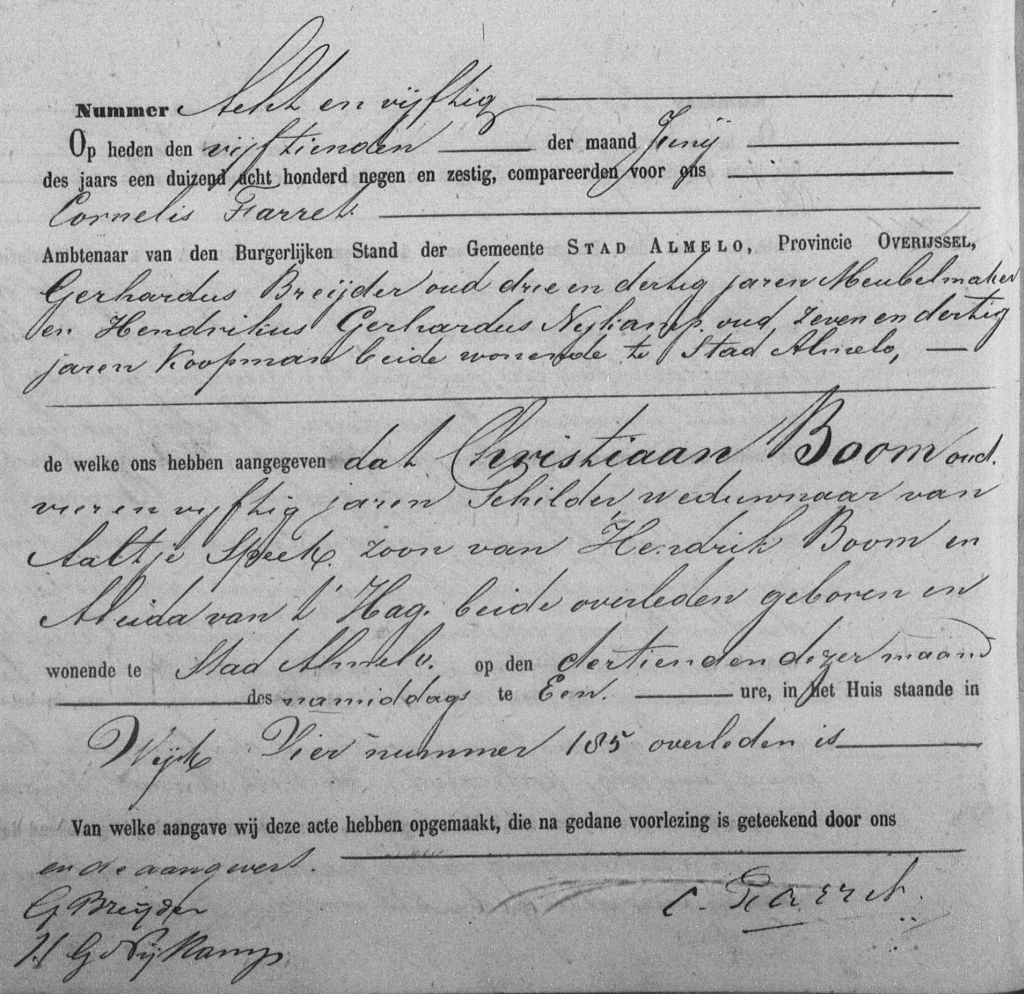 Nummer Acht en vijftig
Op heden den vijftienden der maand Junij
des jaars een duizend acht honderd negen en zestig, compareerden voor ons
Cornelis Farret
Ambtenaar van den Burgerlijken Stand der Gemeente STAD ALMELO, Provincie OVERIJSSEL,
Gerhardus Breijder oud drie en dertig jaren Meubelmaker
en Hendrikus Gerhardus Nijkamp oud, zeven en dertig
jaren Koopman beide wonende te Stad Almelo,
de welke ons hebben aangegeven dat Christiaan Boom oud.
vier en vijftig jaren Schilder weduwnaar van
Aaltje Speek. zoon van Hendrik Boom en
Aleida van t' Hag. beide overleden geboren en
wonende te Stad Almelo. op den dertienden dezer maand
des namiddags te Een. ure, in het Huis staande in
Wijk Vier nummer 185 overleden is
Van welke aangave wij deze acte hebben opgemaakt, die na gedane voorlezing is geteekend door ons
en de aangevers.
G Breijder
H G Nijkamp
C. Farret.